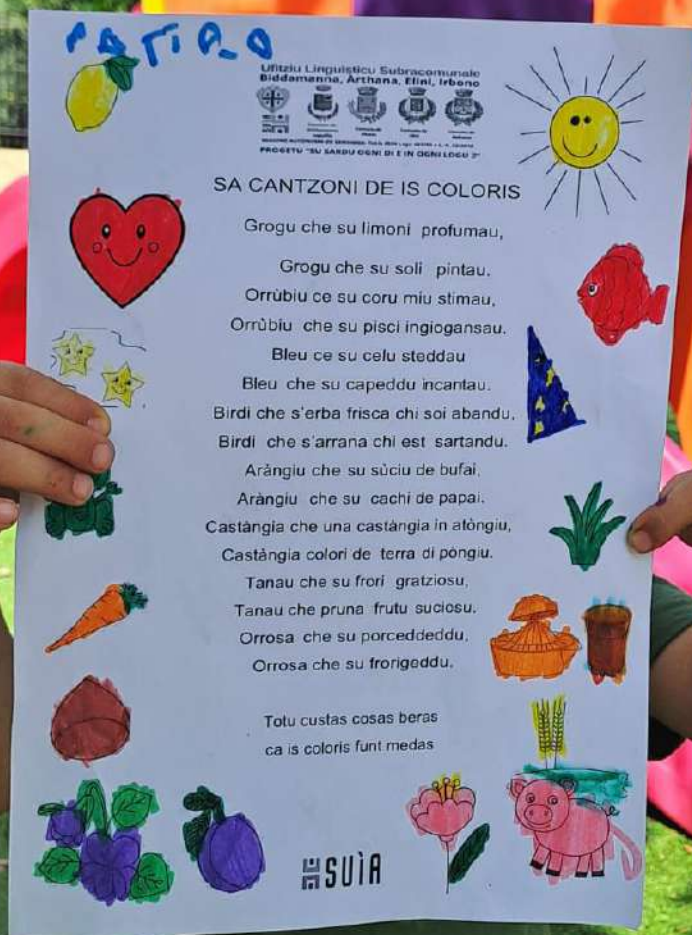 Ufitziu Linguisticu Subracomunale
Biddamanna, Arthana, Elini, Irbono
PROGETU "SU SARDU OGNI DI E IN OGNI LOGU 2"
SA CANTZONI DE IS COLORIS
Grogu che su limoni profumau,
Grogu che su soli pintau.
Orrùbiu ce su coru miu stimau,
Orrùbiu che su pisci ingiogansau.
Bleu ce su celu steddau
Bleu che su capeddu incantau.
Birdi che s'erba frisca chi soi abandu,
Birdi che s'arrana chi est sartandu.
Aràngiu che su sùciu de bufai,
Aràngiu che su cachi de papai.
Castàngia che una castàngia in atòngiu,
Castàngia colori de terra di pòngiu.
Tanau che su frori gratziosu,
Tanau che pruna frutu suciosu.
Orrosa che su porceddeddu,
Orrosa che su frorigeddu.
Totu custas cosas beras
ca is coloris funt medas
SUÌA